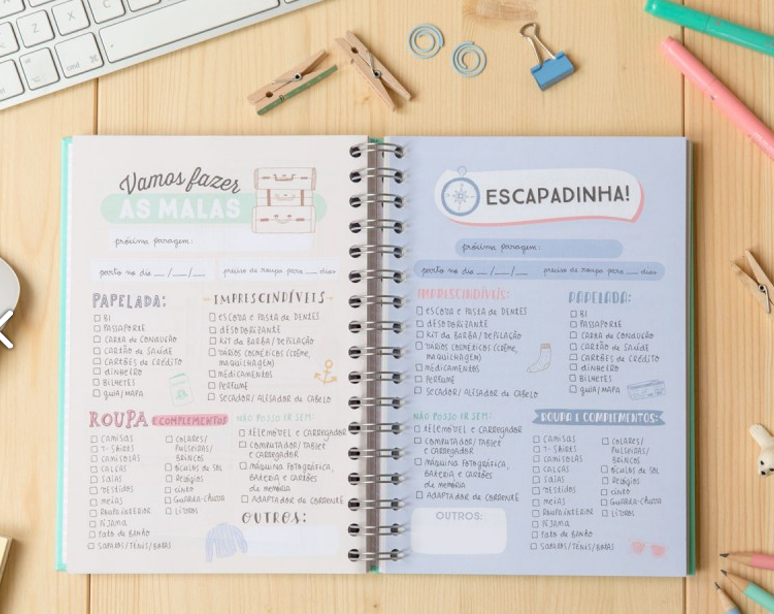 Z
X
C
alt
cmd
Vamos fazer
AS MALAS
próxima paragem:
parto no dia __/__/__ preciso de roupa para __ dias
PAPELADA:
BI
PASSAPORTE
CARTA DE CONDUÇÃO
CARTÃO DE SAÚDE
CARTÕES DE CRÉDITO
DINHEIRO
BILHETES
GUIA/MAPA
IMPRESCINDÍVEIS
ESCOVA E PASTA DE DENTES
DESODORIZANTE
KIT DA BARBA/DEPILAÇÃO
VÁRIOS COSMÉTICOS (CREME,
MAQUILHAGEM)
MEDICAMENTOS
PERFUME
SECADOR/ALISADOR DE CABELO
ROUPA E COMPLEMENTOS
CAMISAS
T-SHIRTS
CAMISOLAS
CALÇAS
SAIAS
VESTIDOS
MEIAS
ROUPA INTERIOR
PIJAMA
FATO DE BANHO
SAPATOS/TÉNIS/BOTAS
COLARES/
PULSEIRAS/
BRINCOS
ÓCULOS DE SOL
RELÓGIOS
CINTO
GUARDA-CHUVA
LIVROS
NÃO POSSO IR SEM:
TELEMÓVEL E CARREGADOR
COMPUTADOR/TABLET
E CARREGADOR
MÁQUINA FOTOGRÁFICA,
BATERIA E CARTÕES
DE MEMÓRIA
ADAPTADOR DE CORRENTE
OUTROS:
ESCAPADINHA!
próxima paragem:
parto no dia __/__/__ preciso de roupa para __ dias
IMPRESCINDÍVEIS:
ESCOVA E PASTA DE DENTES
DESODORIZANTE
KIT DA BARBA/DEPILAÇÃO
VÁRIOS COSMÉTICOS (CREME,
MAQUILHAGEM)
MEDICAMENTOS
PERFUME
SECADOR/ALISADOR DE CABELO
PAPELADA:
BI
PASSAPORTE
CARTA DE CONDUÇÃO
CARTÃO DE SAÚDE
CARTÕES DE CRÉDITO
DINHEIRO
BILHETES
GUIA/MAPA
NÃO POSSO IR SEM:
TELEMÓVEL E CARREGADOR
COMPUTADOR/TABLET
E CARREGADOR
MÁQUINA FOTOGRÁFICA,
BATERIA E CARTÕES
DE MEMÓRIA
ADAPTADOR DE CORRENTE
OUTROS:
ROUPA E COMPLEMENTOS:
CAMISAS
T-SHIRTS
CAMISOLAS
CALÇAS
SAIAS
VESTIDOS
MEIAS
ROUPA INTERIOR
PIJAMA
FATO DE BANHO
SAPATOS/TÉNIS/BOTAS
COLARES/
PULSEIRAS/
BRINCOS
ÓCULOS DE SOL
RELÓGIOS
CINTO
GUARDA-CHUVA
LIVROS